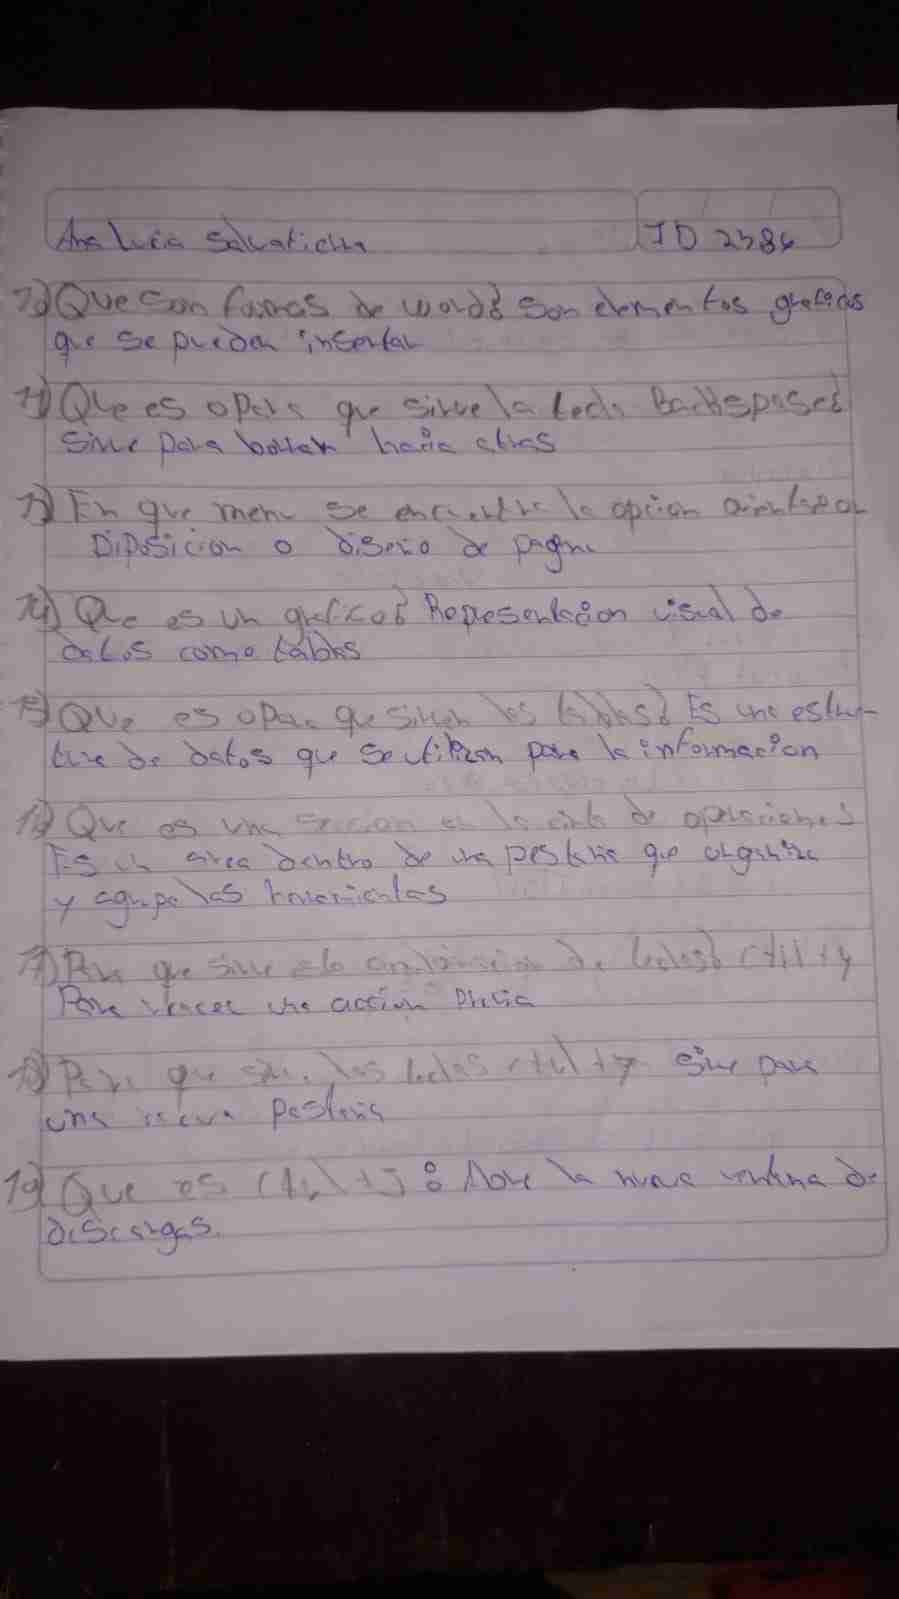 Ana Lucia Salvatierra ID 2386
Que son formas de word? Son elementos graficos
que se pueden insertar
Que es opara que sirve la tecla Backspase?
Sirve para borrar hacia atras
En que menu se encuentra la opcion orientacion
Disposicion o diseño de pagina
14) Que es un grafico? Representacion visual de
datos como tablas
15) Que es opara que sirven las tablas? Es una estruc-
tura de datos que se utilizan para la informacion
16) Que es una seccion en la cinta de operaciones?
Es un area dentro de una pestaña que organiza
y agrupa las herramientas
17) Para que sirve la combinacion de teclas? Ctrl + y
Para una accion Previa
18) Para que sirve las teclas ctrl + T Sirve para
una nueva pestaña
19) Que es Ctrl + J : Abre la nueva ventana de
descargas.